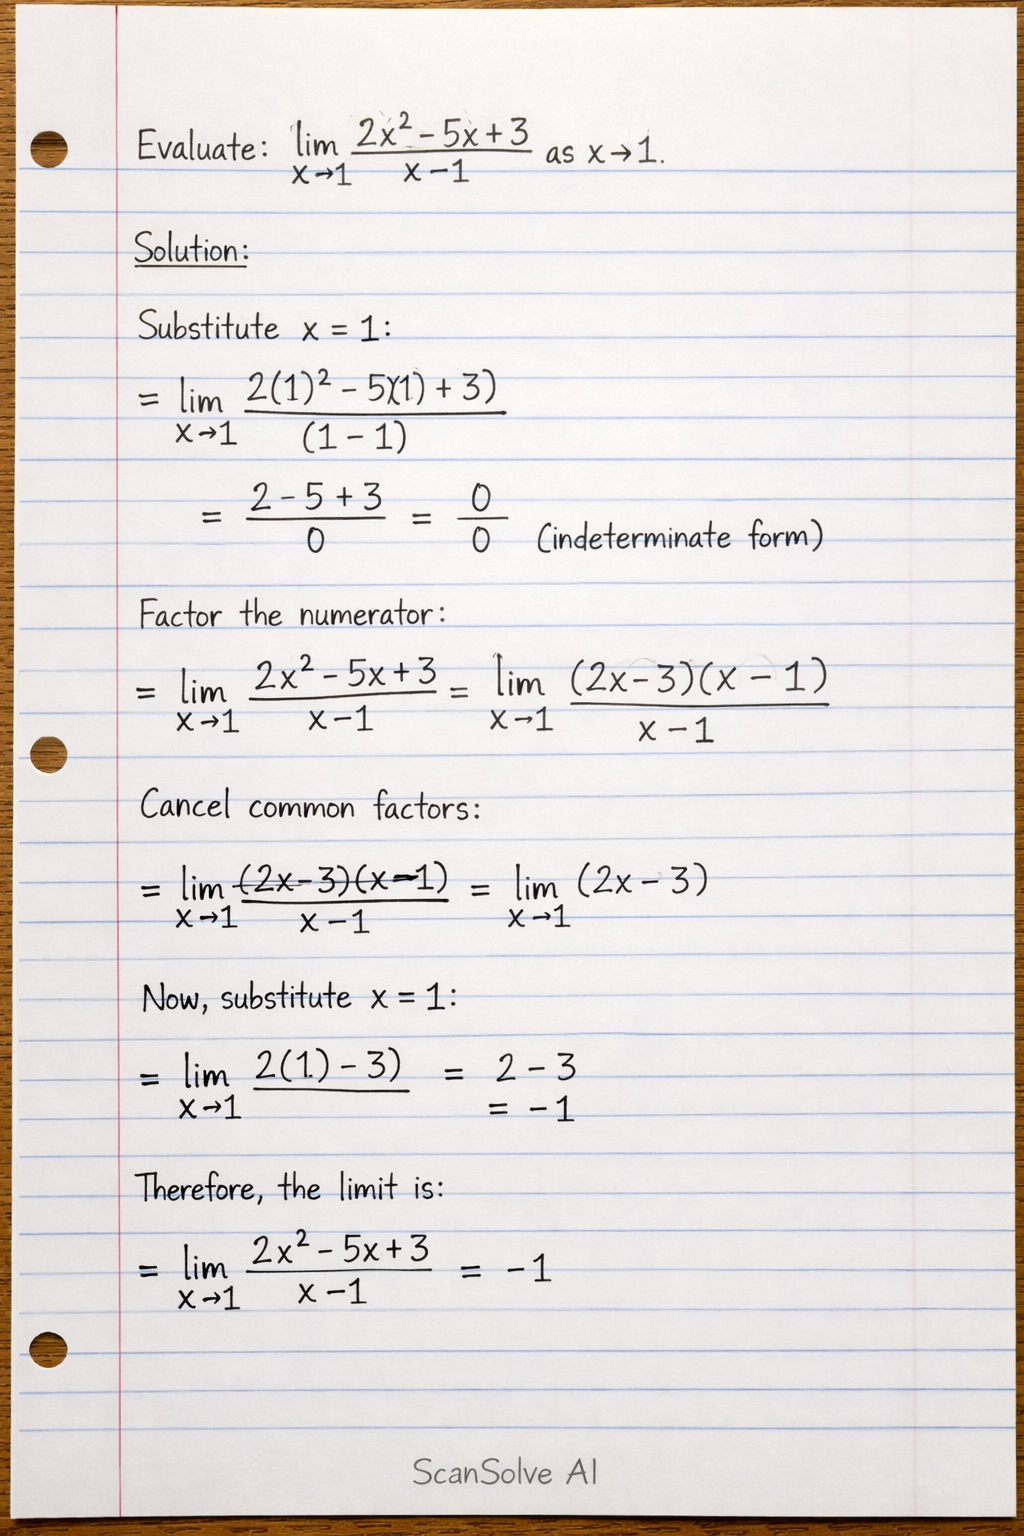 Evaluate: lim x→1 (2x² - 5x + 3)/(x - 1) as x→1.
Solution:
Substitute x = 1:
= lim x→1 2(1)² - 5(1) + 3) / (1 - 1)
= (2 - 5 + 3)/0 = 0/0 (indeterminate form)
Factor the numerator:
= lim x→1 (2x² - 5x + 3)/(x - 1) = lim x→1 (2x - 3)(x - 1)/(x - 1)
Cancel common factors:
= lim x→1 (2x - 3)(x - 1)/(x - 1) = lim x→1 (2x - 3)
Now, substitute x = 1:
= lim x→1 2(1) - 3) = 2 - 3
= -1
Therefore, the limit is:
= lim x→1 (2x² - 5x + 3)/(x - 1) = -1
ScanSolve AI